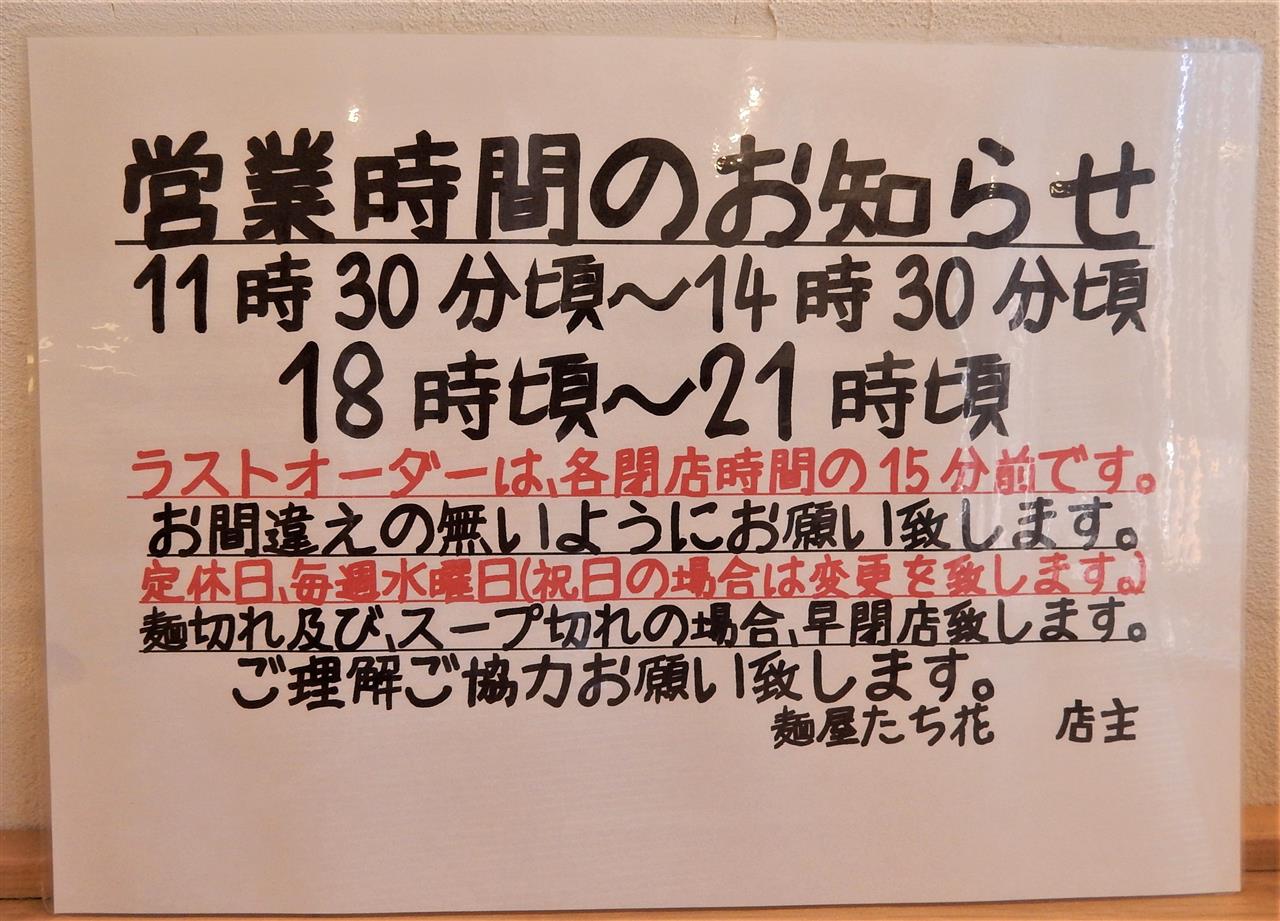 営業時間のお知らせ
11時30分頃～14時30分頃
18時頃～21時頃
ラストオーダーは、各閉店時間の15分前です。
お間違えの無いようにお願い致します。
定休日、毎週水曜日(祝日の場合は変更を致します。)
麺切れ及び、スープ切れの場合、早閉店致します。
ご理解ご協力お願い致します。
麺屋たち花　店主